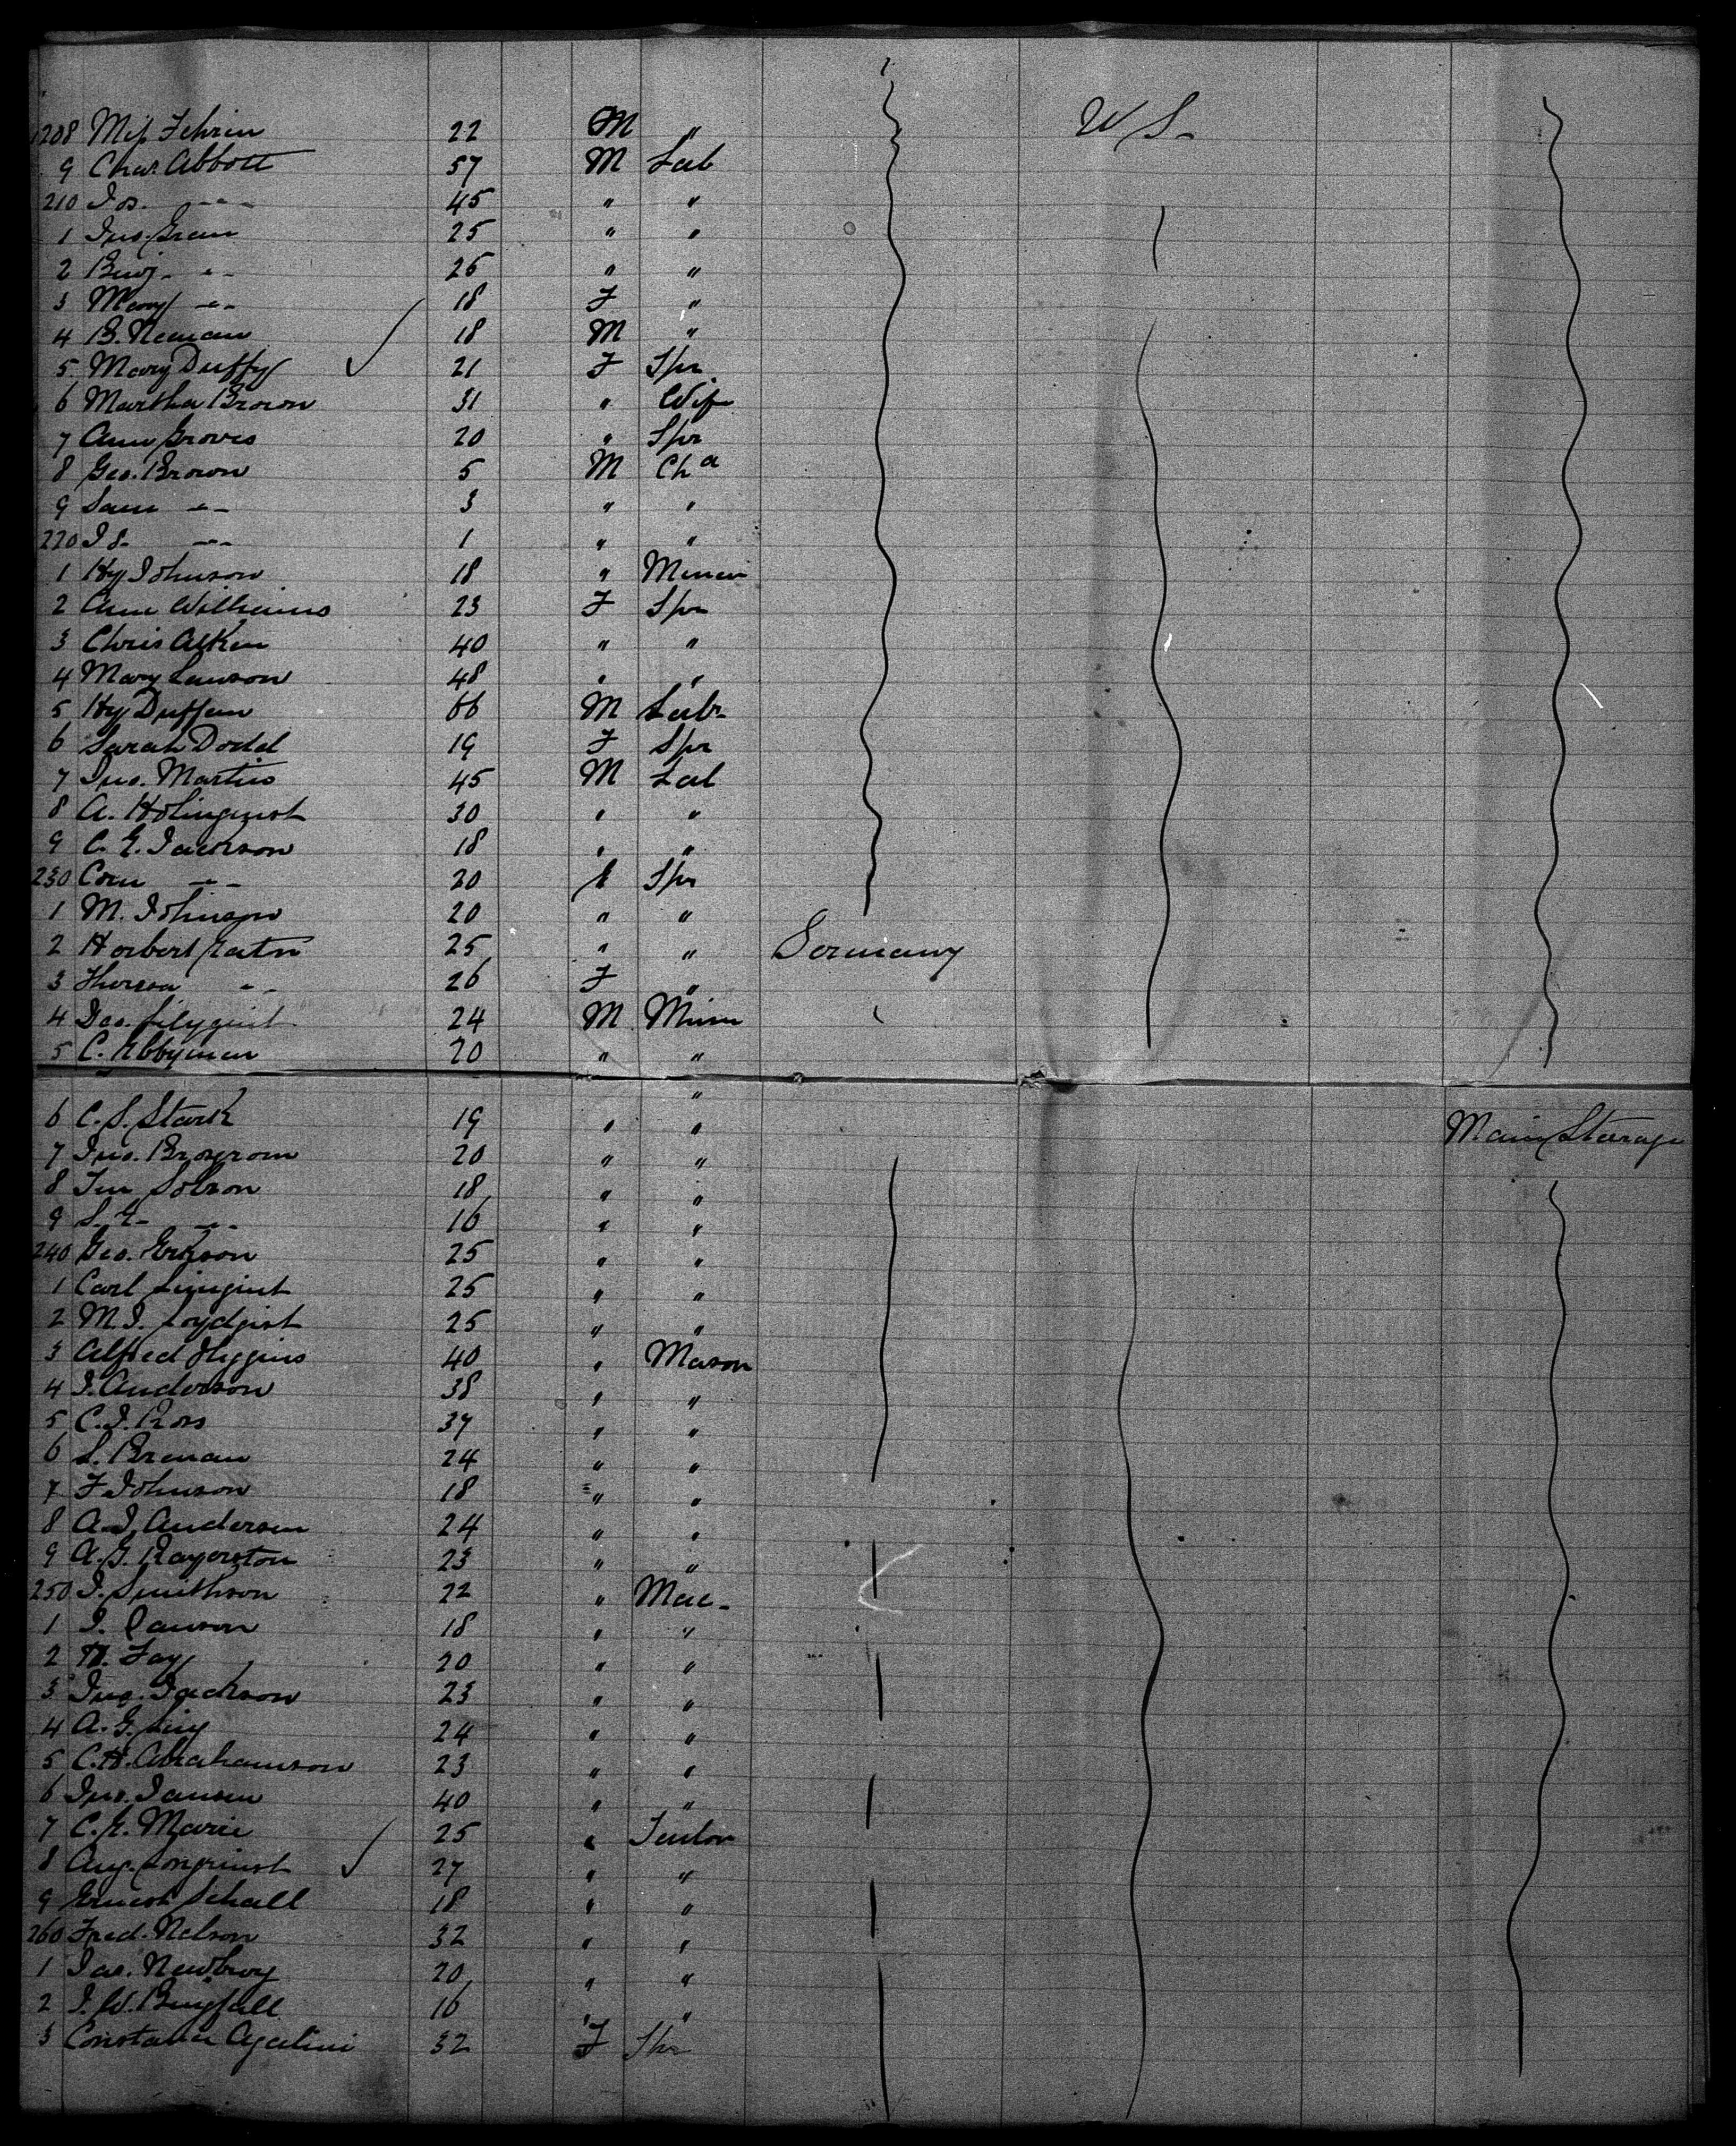 1208 Mip Fehrin 22 M " W S-
9 Chas. Abbott 57 M Lab
210 Jos. -"- 45 " "
1 Jno. Gran 25 " "
2 Benj- -"- 25 " "
3 Mary -"- 18 F "
4 B. Neuman 18 M "
5 Mary Duffy 21 F Spr
6 Martha Brown 31 " Wife
7 Ann Groves 20 " Spr
8 Geo. Brown 5 M Cha
9 Sam -"- 3 " "
220 Is- -"- 1 " "
1 Hy Johnson 18 " Miner
2 Ann Williams 23 F Spr
3 Chris Aitken 40 " "
4 Mary Lawson 48 " "
5 Hy Duffam 66 M Labr
6 Sarah Dodd 19 F Spr
7 Jno. Martin 45 M Lab
8 A. Holinquist 30 " "
9 C. E. Jackson 18 " "
230 Corn -"- 20 Spr
1 M. Johnson 20 " "
2 Horbert Eatn 25 " " Germany
3 Theresa -"- 26 F "
4 Geo. Lilyquist 24 M Miner
5 C. Ebbyman 20 " "
"
6 C. S. Stark 19 " " Main Steerage
7 Jno. Brogrom 20 " "
8 Jno Solson 18 " "
9 S. E- -"- 16 " "
240 Geo. Erikson 25 " "
1 Carl Linquist 25 " "
2 M. J. Loydgist 25 " "
3 Alfred Higgins 40 " Mason
4 J. Anderson 38 " "
5 C. J. Ross 37 " "
6 S. Brenan 24 " "
7 F Johnson 18 " "
8 A. J. Anderson 24 " "
9 A. G. Rayerston 23 " "
250 J. Smithson 22 " Mac-
1 J. Dawson 18 " "
2 H. Fay 20 " "
3 Jno. Jackson 23 " "
4 A. G. Liny 24 " "
5 C. H. Abrahamson 23 " "
6 Jno. Jansen 40 " "
7 C. E. Marie 25 "
8 Aug. Longrinst 27 " "
9 Ernest Schall 18 " "
260 Fred. Nelson 32 " "
1 Jas. Newbroy 20 " "
2 J. W. Bingfall 16 " "
3 Constance Agatini 32 F Spr